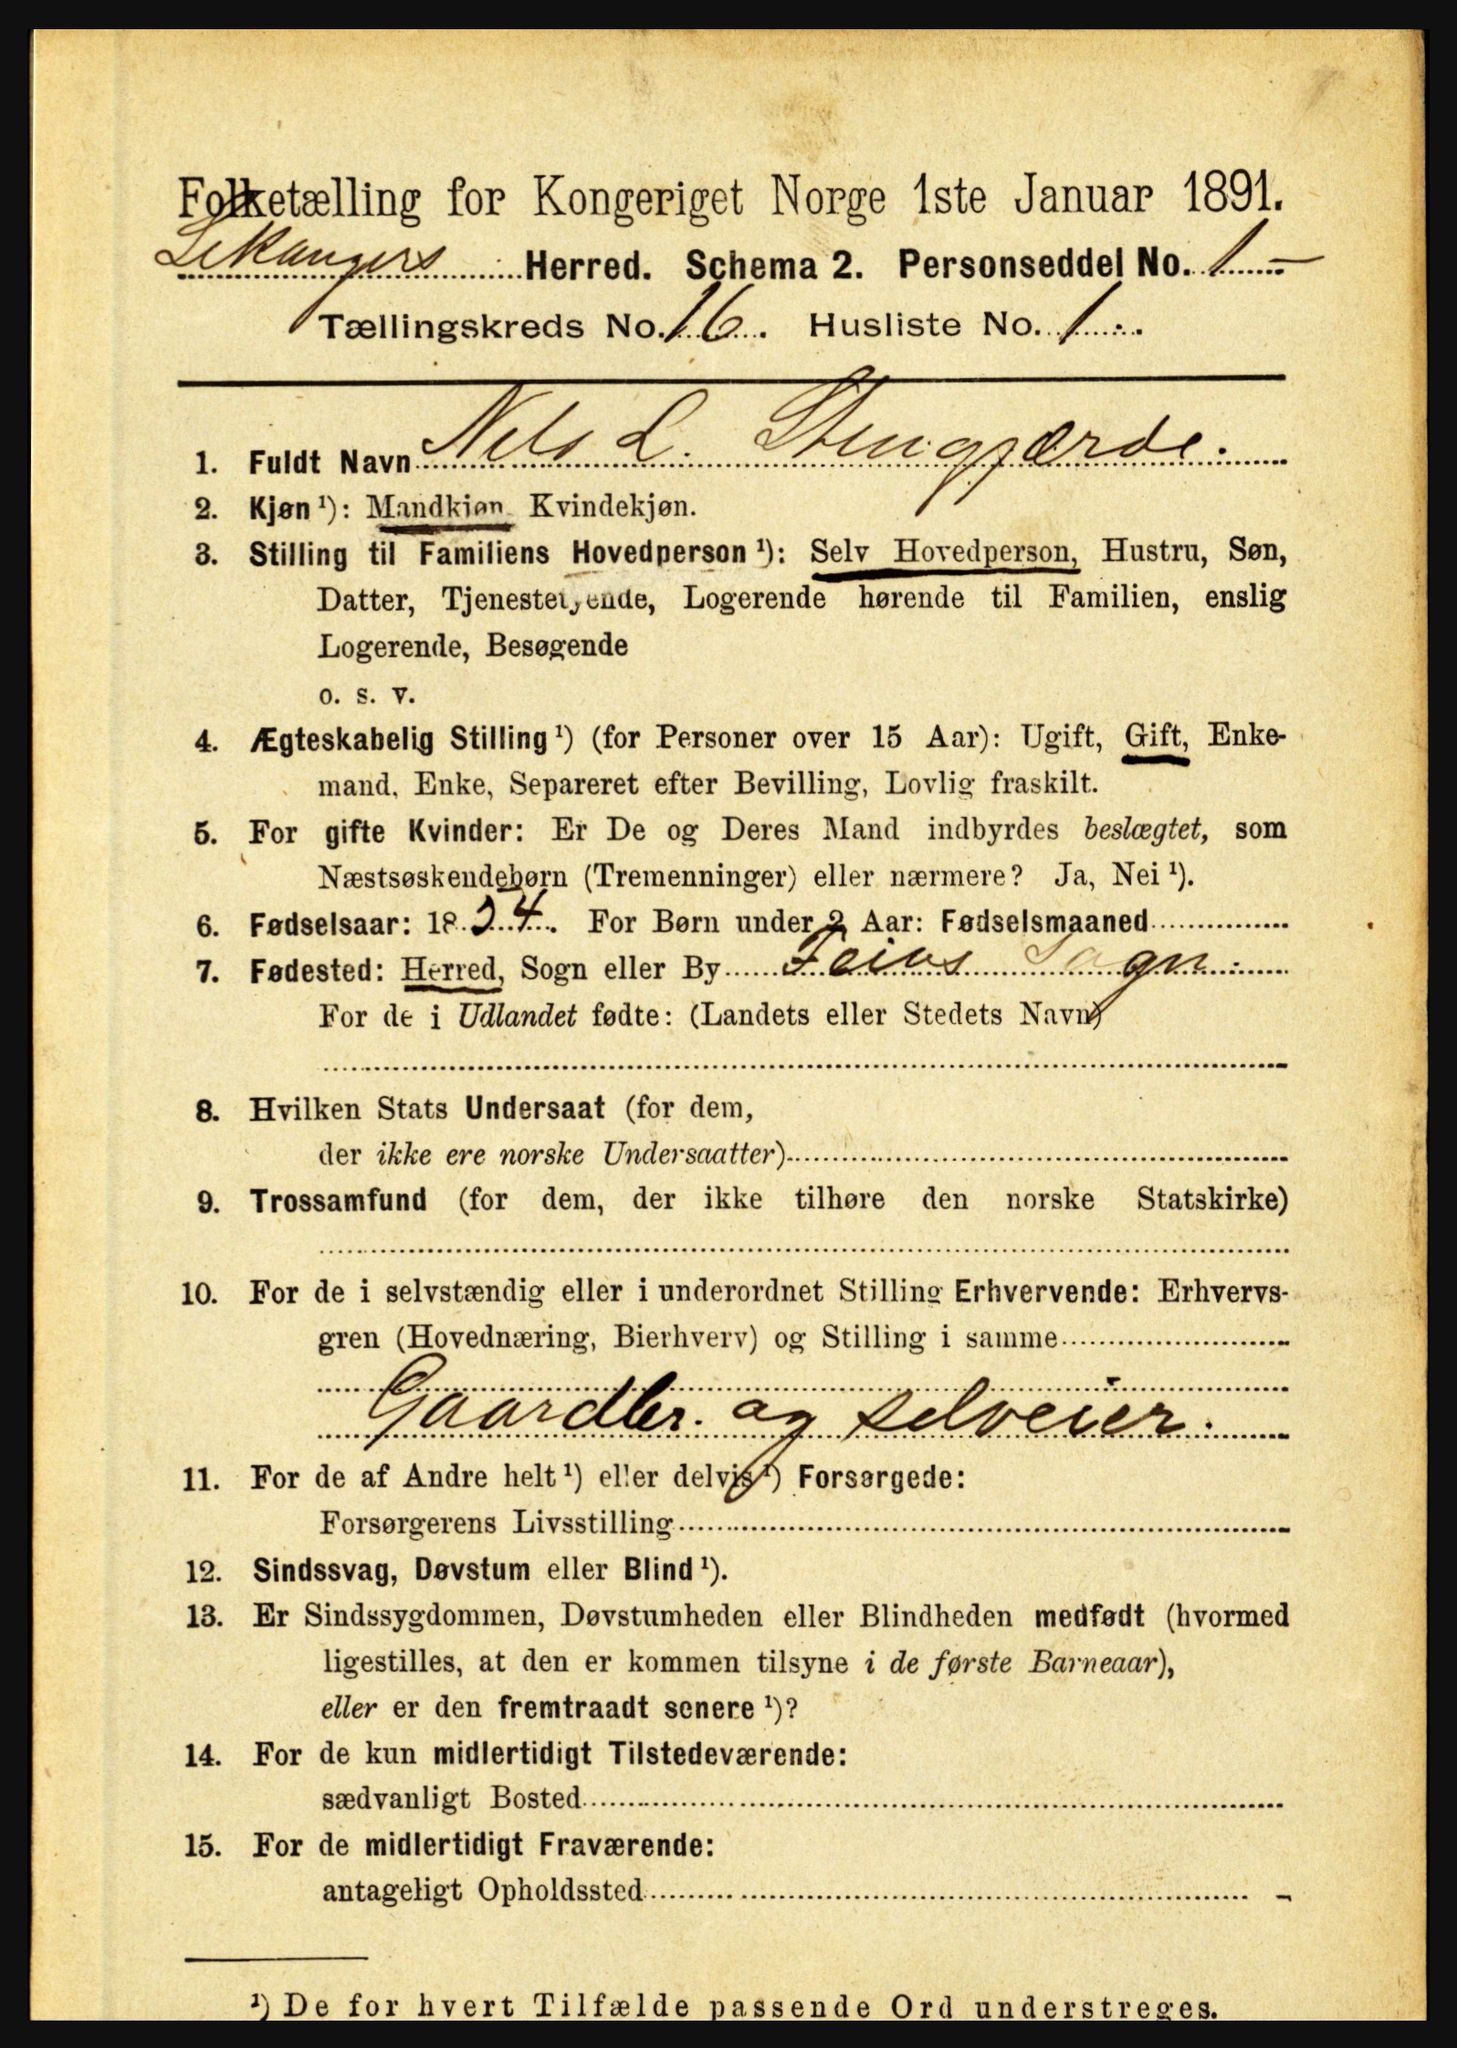 Folketælling for Kongeriget Norge 1ste Januar 1891.
Lekangers Herred. Schema 2. Personseddel No. 1
Tællingskreds No. 16. Husliste No. 1.
1. Fuldt Navn Nels L. Stengjærde.
2. Kjøn ¹): Mandkjøn Kvindekjøn.
3. Stilling til Familiens Hovedperson ¹): Selv Hovedperson, Hustru, Søn,
Datter, Tjenestetyende, Logerende hørende til Familien, enslig
Logerende, Besøgende
o. s. v.
4. Ægteskabelig Stilling ¹) (for Personer over 15 Aar): Ugift, Gift, Enke-
mand, Enke, Separeret efter Bevilling, Lovlig fraskilt.
5. For gifte Kvinder: Er De og Deres Mand indbyrdes beslægtet, som
Næstsøskendebørn (Tremenninger) eller nærmere? Ja, Nei ¹).
6. Fødselsaar: 1834. For Børn under 2 Aar: Fødselsmaaned
7. Fødested: Herred, Sogn eller By Feios Sogn.
For de i Udlandet fødte: (Landets eller Stedets Navn)
8. Hvilken Stats Undersaat (for dem,
der ikke ere norske Undersaatter)
9. Trossamfund (for dem, der ikke tilhøre den norske Statskirke)
10. For de i selvstændig eller i underordnet Stilling Erhvervende: Erhvervs-
gren (Hovednæring, Bierhverv) og Stilling i samme
Gaardbr. og selveier.
11. For de af Andre helt ¹) eller delvis ¹) Forsørgede:
Forsørgerens Livsstilling
12. Sindssvag, Døvstum eller Blind ¹).
13. Er Sindssygdommen, Døvstumheden eller Blindheden medfødt (hvormed
ligestilles, at den er kommen tilsyne i de første Barneaar),
eller er den fremtraadt senere ¹)?
14. For de kun midlertidigt Tilstedeværende:
sædvanligt Bosted
15. For de midlertidigt Fraværende:
antageligt Opholdssted
¹) De for hvert Tilfælde passende Ord understreges.